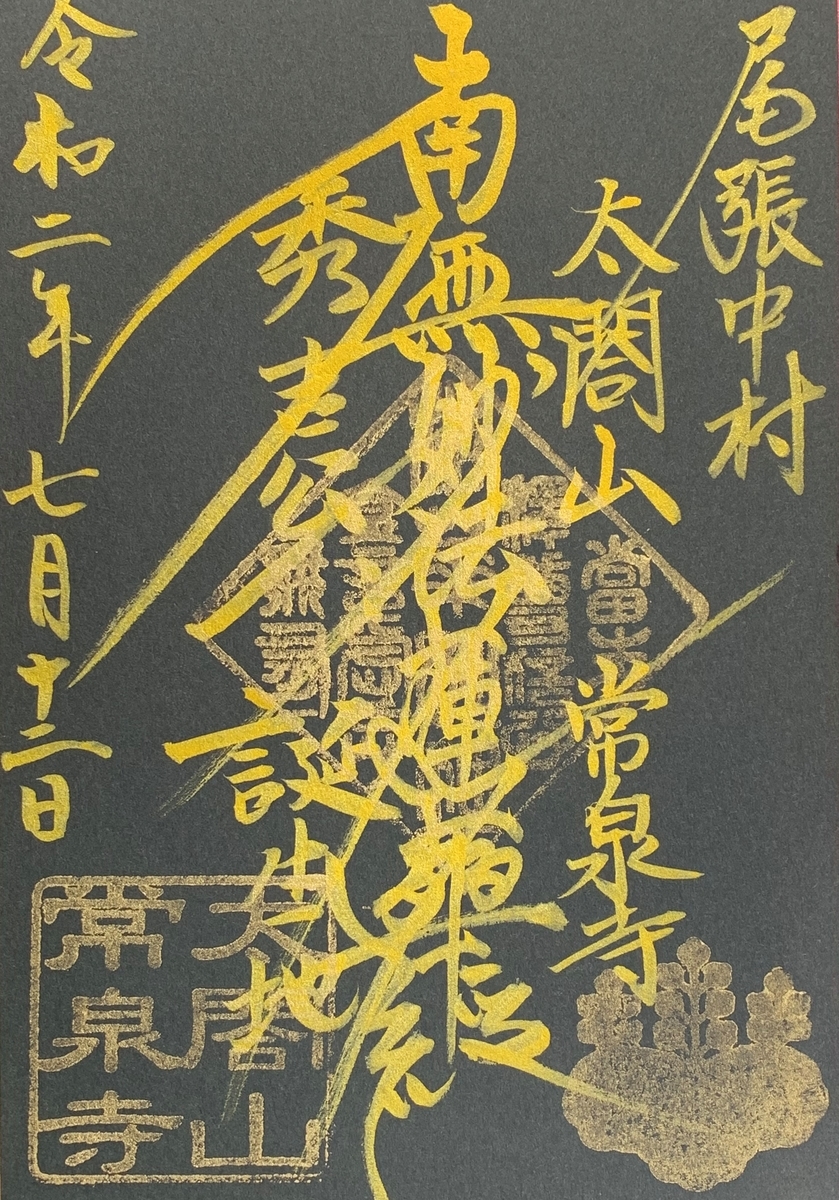 尾張中村
太閤山 常泉寺
南無妙法蓮華経
秀吉公 誕生地
令和二年 七月十二日
當
太閤山
常泉寺